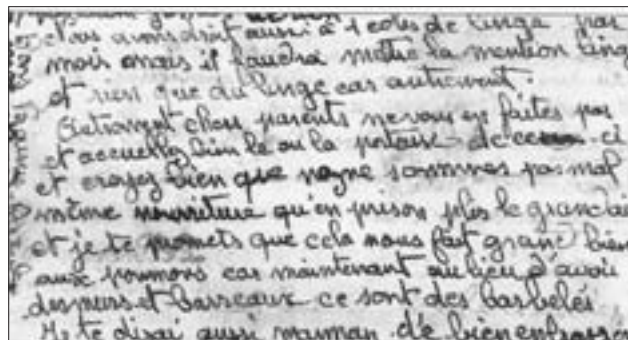 nous avons droit aussi à 1 colis de linge par
mois mais il faudra mettre la mention linge
et rien que du linge car autrement.
chers parents ne vous en faites pas
et accueillez bien le ou la porteuse de ci
et croyez bien que nous ne sommes pas mal
même nourriture qu'en prison plus le grand air
et je te promets que cela nous fait grand bien
aux poumons car maintenant au lieu d'avoir
des murs et barreaux ce sont des barbelés
Je te dirai aussi maman de bien embrasser